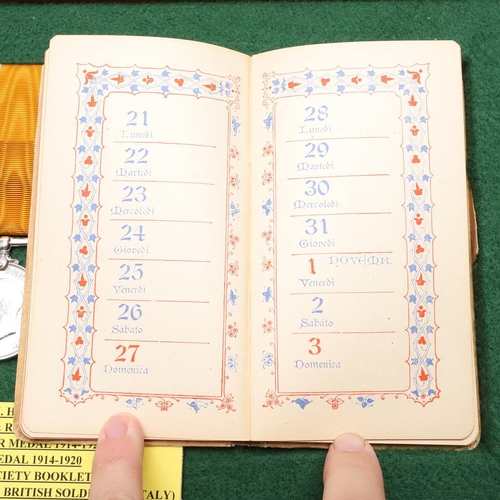 21
Lunedì
22
Martedì
23
Mercoledì
24
Giovedì
25
Venerdì
26
Sabato
27
Domenica
28
Lunedì
29
Martedì
30
Mercoledì
31
Giovedì
1 NOVEMB.
Venerdì
2
Sabato
3
Domenica
R MEDAL 1914-192
EDAL 1914-1920
CIETY BOOKLET
BRITISH SOLD TALY)